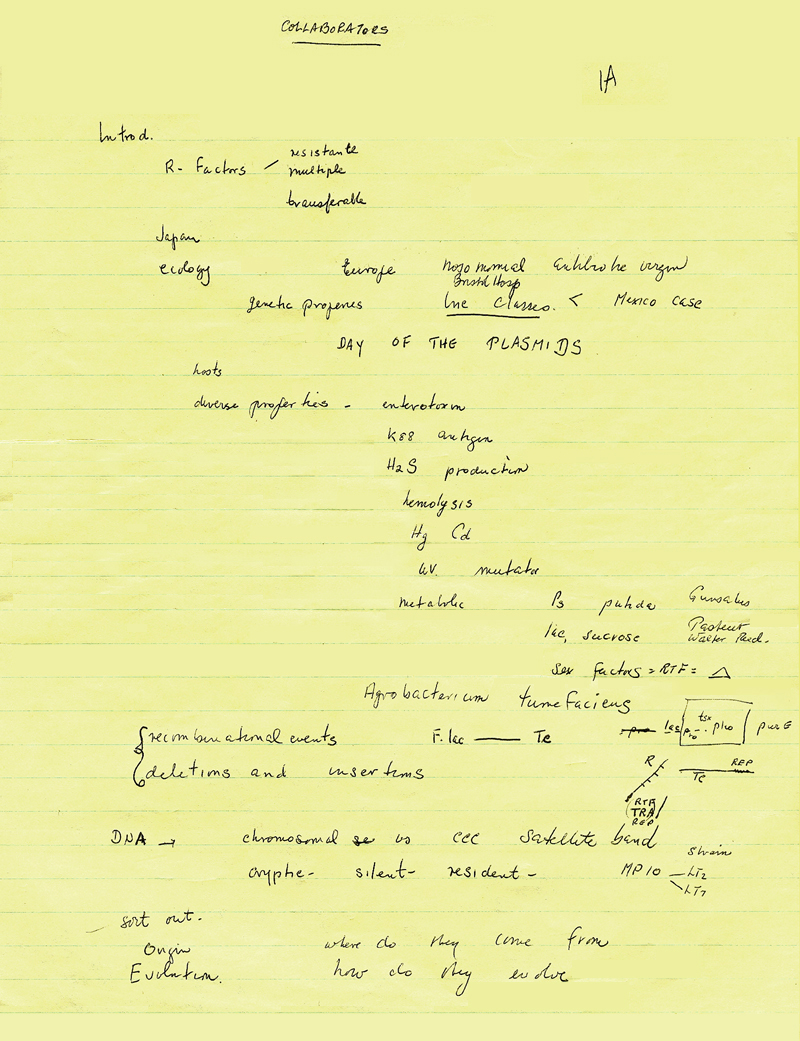 COLLABORATORS
1A
Introd.
R- Factors / resistante
multiple
transferable
Japan
ecology Europe normal antibiotic virgin
Bristol Hosp
genetic properies Inc Classes. < Mexico case
DAY OF THE PLASMIDS
hosts
diverse properties - enterotoxin
K88 antigen
H2S production
hemolysis
Hg Cd
UV. mutator
metabolic Ps putida Gunsalus
lac, sucrose Pasteur
Walter Reed.
Sex factors = RTF = △
Agrobacterium tumefaciens
recombinational events F. lac —— Tc pro lac pro tsx pho purE
deletions and insertions
R REP
Tc
RTF
TRA
REP
DNA → chromosomal se vs CCC satellite band
cryptic - silent - resident - MP10 strain
LT2
LT7
Sort out.
Origin where do they come from
Evolution. how do they evolve